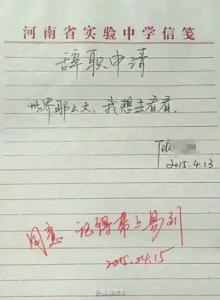 河南省实验中学信笺
辞职申请
世界那么大，我想去看看。
2015.4.13
同意 记得带上易到
2015.04.15